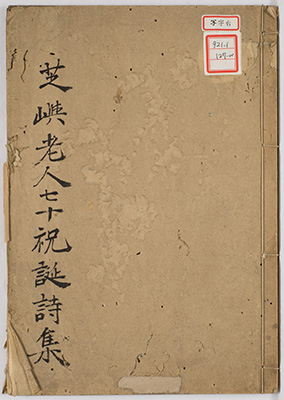 写字台
921.1
芝嶼老人七十祝誕詩集